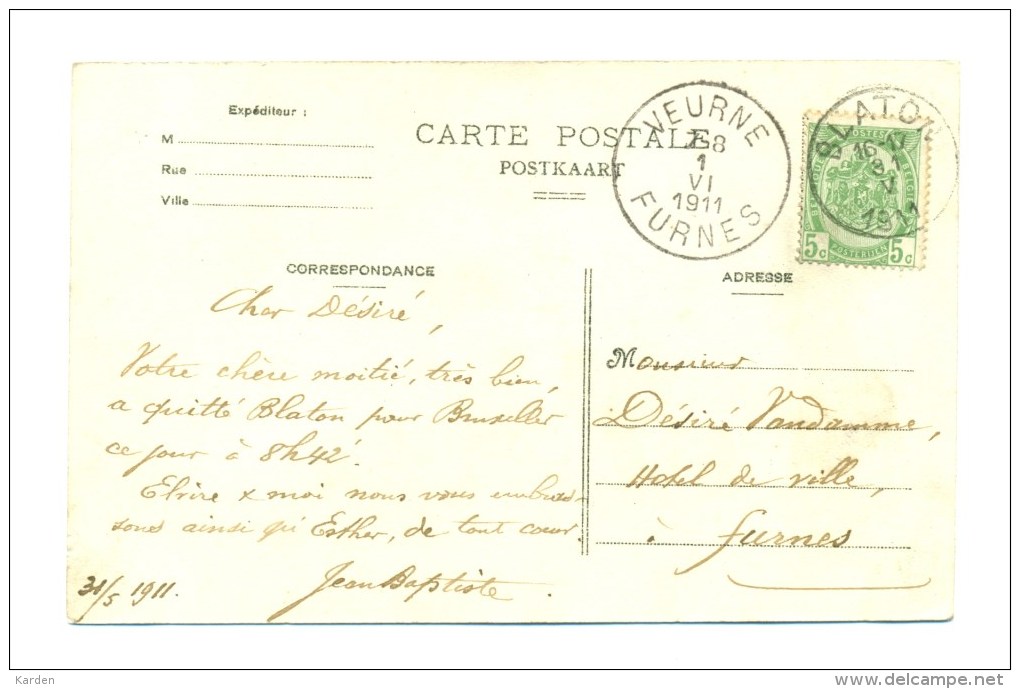 Expéditeur :
M
Rue
Ville
CARTE POSTALE
POSTKAART
VEURNE
7-8
1
VI
1911
FURNES
BLATON
16-17
31
V
1911
POSTES
POSTERIJEN
5c 5c
CORRESPONDANCE
ADRESSE
Cher Désiré,
Votre chère moitié, très bien,
a quitté Blaton pour Bruxelles
ce jour à 8h42.
Elvire & moi nous vous embras-
sons ainsi qu'Esther, de tout cœur.
Jean Baptiste.
31/5 1911.
Monsieur
Désiré Vandamme,
Hotel de ville,
à Furnes
Karden